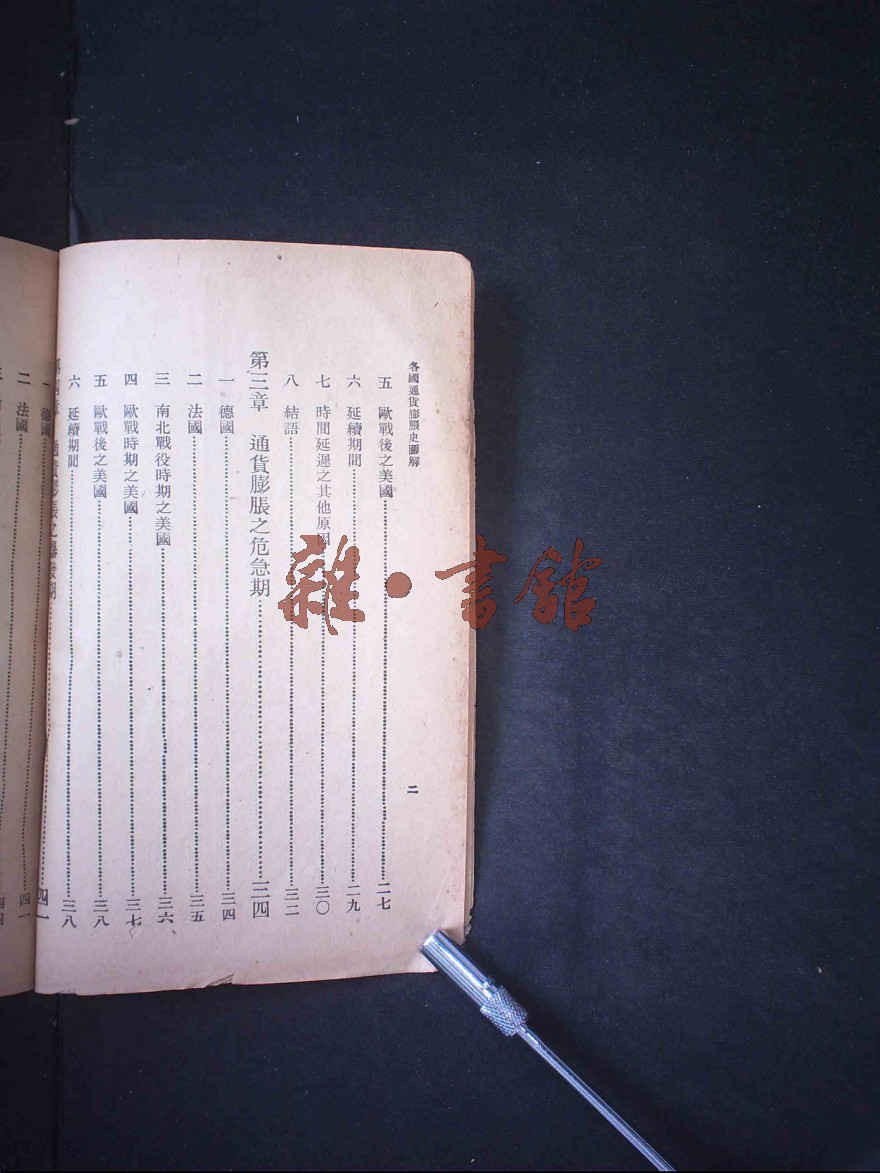 各國通貨膨脹史圖解
二
五 歐戰後之美國 二七
六 延續期間 二九
七 時間延遲之其他原因 三〇
八 結語 三二
第三章 通貨膨脹之危急期 三四
一 德國 三四
二 法國 三五
三 南北戰役時期之美國 三六
四 歐戰時期之美國 三七
五 歐戰後之美國 三八
六 延續期間 三八
第四章 通貨膨脹之 期 四一
一 德國
二 法國 四一
雜·書館